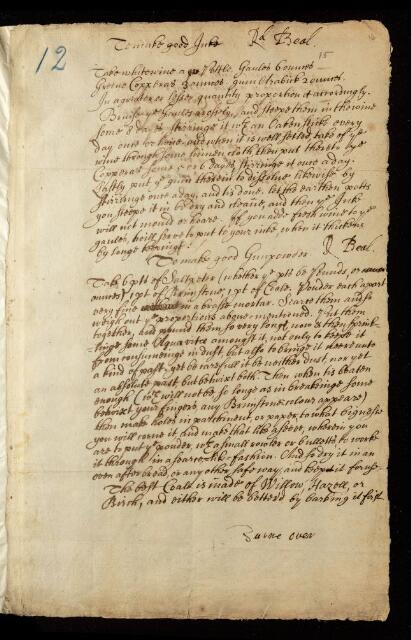 12
To make good Ink Rd Beal.
15
Take white wine a pottle, Gaules 6 ounces
Greene Copperas 3 ounces, gum Arabick 2 ounces.
In a greater or lesser quantity proportion it accordingly.
Bruise ye Gaules grosly, and steepe them in the wine
some 8 dayes stirringe it wth an Oaken sticke every
day once
wine through some linnen cloth, then put thereto ye
Copperas some 5 or 6 dayes stirringe it once a day.
Lastly put ye gum therein to dissolve likewise by
stirringe once a day, and tis done. let the earthen potte
you steepe it in be dry and cleane, and then ye Ink
will not mould or hoare. If you adde fresh wine to ye
gaules, he will serve to put to your inke when it thickens
by longe keeping.
To make good Gunpowder R Beal.
Take 6 ptt of Saltpeter (whether ye ptt be pounds, or
ounces) 1 pt of Brimstone, 1 pt of Coole. Ponder each apart
very fine in a brasse mortar. Searce them and so
weigh out ye proportions above mentioned. Put them
together, and pound them so very longe, now & then sprink-
linge some Aquavitae amongst it, not only to keepe it
from consumeinge in dust, but also to bringe it neere unto
a kind of past, yet be carefull it be neither dust, nor yet
an absolute past but betwixt both. Then when tis beaten
enough (wch will not be so longe as in breakinge some
betwixt your fingers any Brimstone colour appeare)
then make holes in parchment, or paper, to what bignesse
you will corne it, and make that like a sieve, wherein you
are to put ye powder, wth a small rowler or bulletts to worke
it through in a searce-like fashion. And so dry it in an
oven after bread, or any other safe way, and keep it for use.
The best Coale is made of Willow, Hazell, or
Birch, and either will be betterd by barking it first.
Turne over